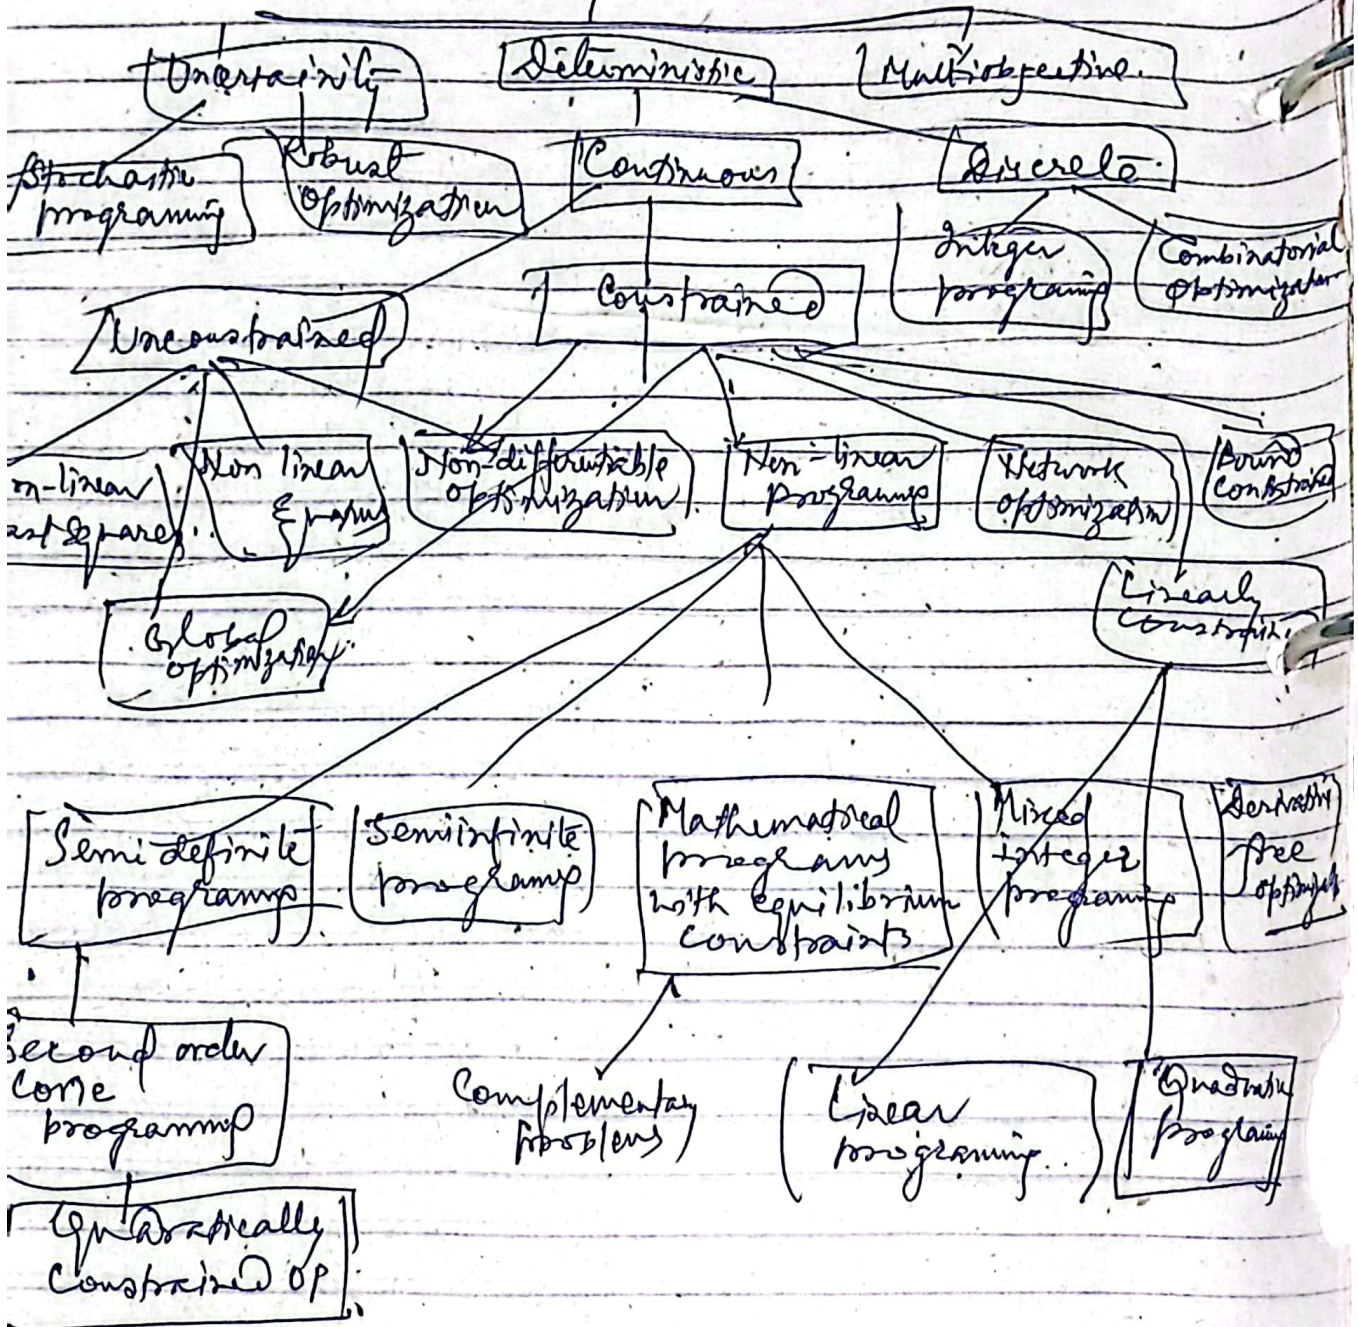 Uncertainity
Deterministic
Multiobjective.
Stochastic
programing
Robust
optimization
Continuous
Discrete.
Integer
programing
Combinatorial
optimization
Unconstrained
Constrained
n-linear
ast squares
Non linear
Equations
Non-differentiable
optimization
Non-linear
programing
Network
optimization
Bound
Constrained
Global
optimization
Linearly
constrain
Semi definite
programing
Semiinfinite
programing
Mathematical
programs
with equilibrium
constraints
Mixed
integer
programing
Derivative
free
Second order
cone
programing
Complementary
problems
Linear
programing
Quadratic
programing
Quadratically
Constrained op